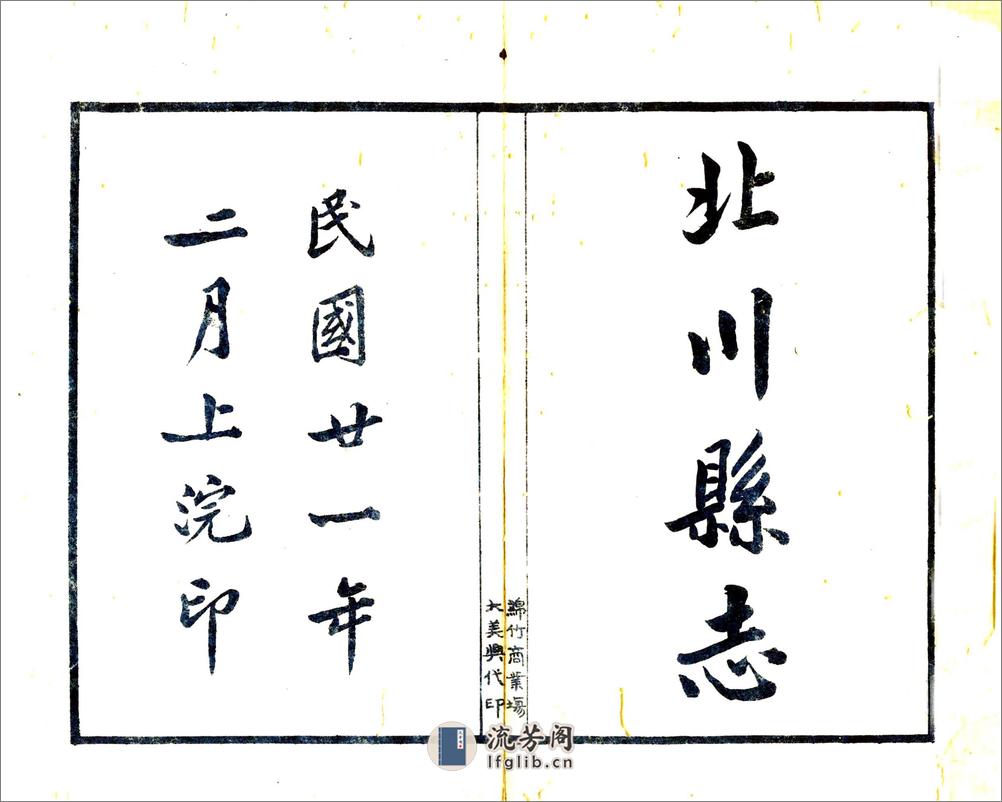 北川縣志
綿竹商業場
大美興代印
民國廿一年
二月上浣印
流芳阁
lfglib.cn